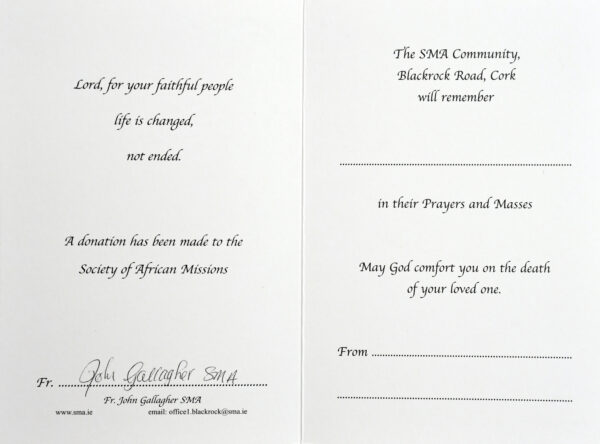 Lord, for your faithful people
life is changed,
not ended.
A donation has been made to the
Society of African Missions
Fr. John Gallagher SMA
Fr. John Gallagher SMA
www.sma.ie email: office1.blackrock@sma.ie
The SMA Community,
Blackrock Road, Cork
will remember
in their Prayers and Masses
May God comfort you on the death
of your loved one.
From